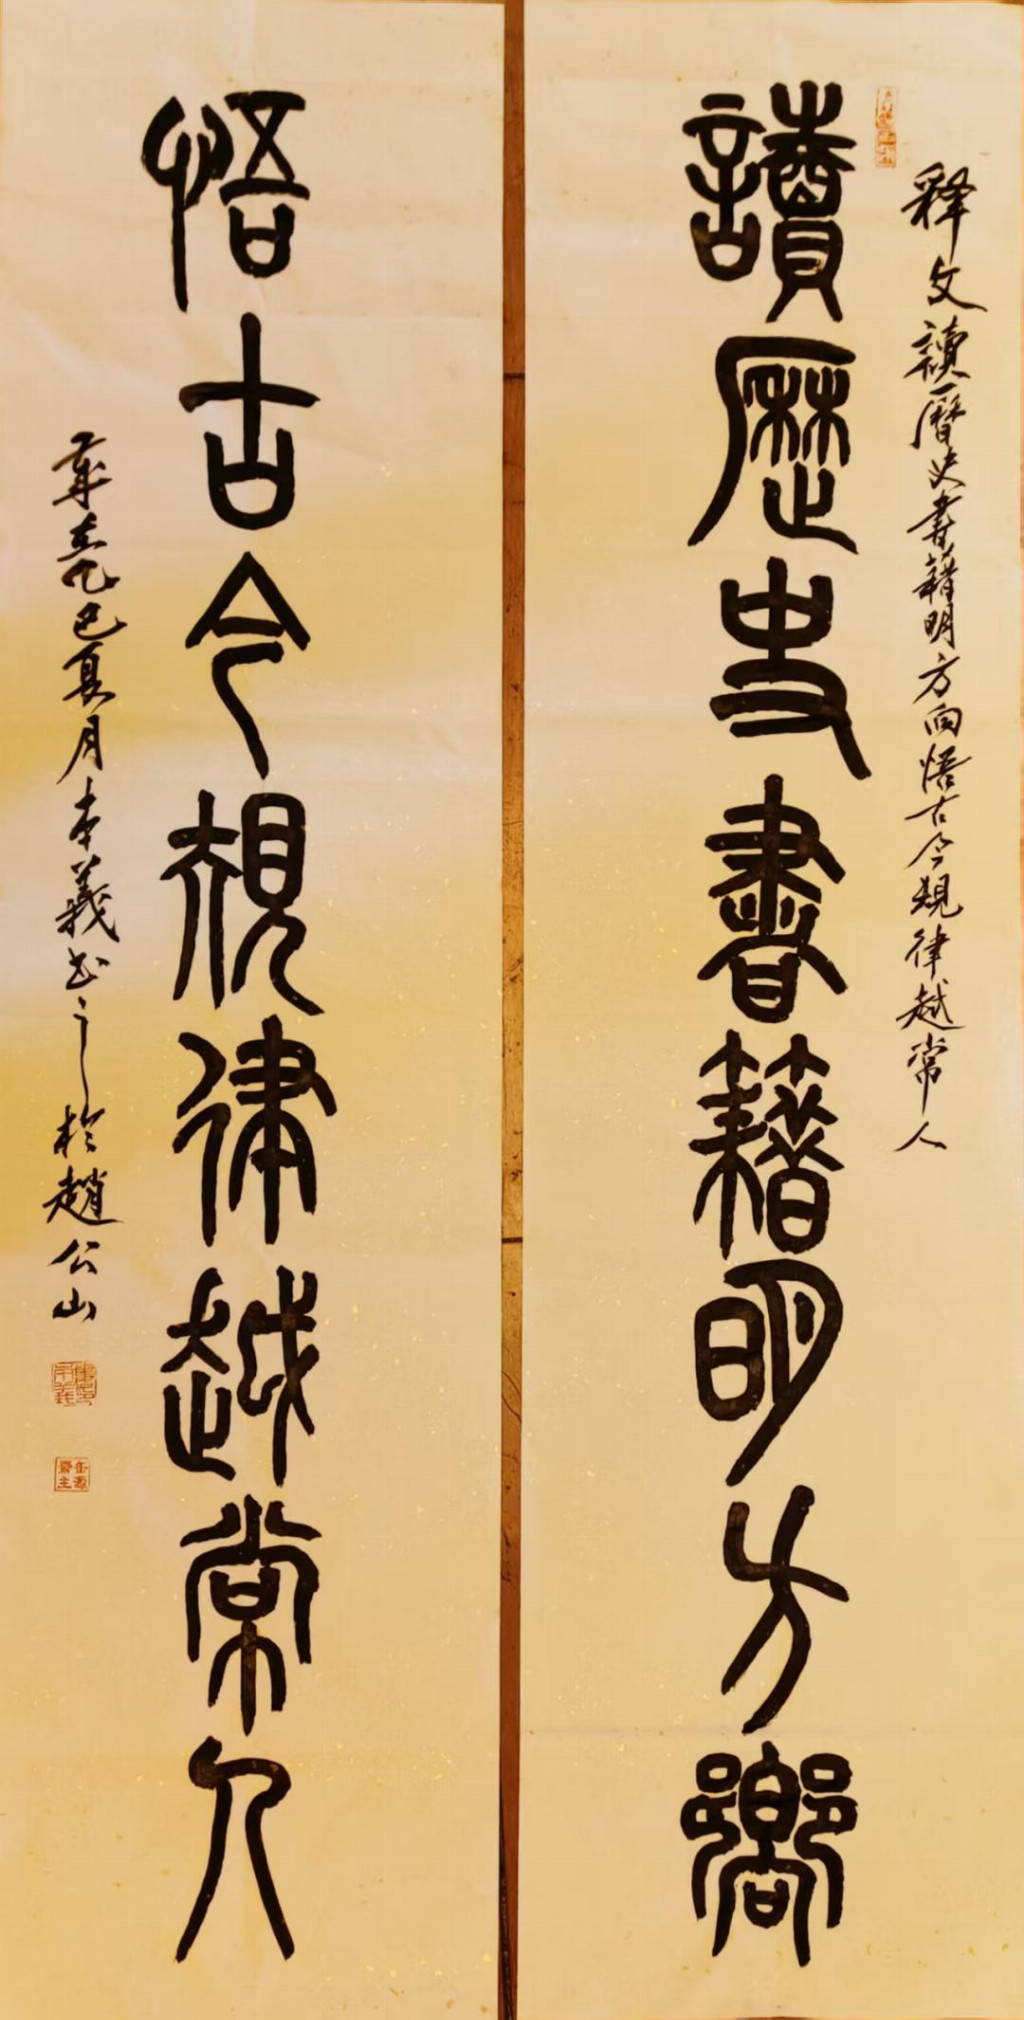 释文讀曆史書籍明方向悟古今規律越常人
讀歷史書籍明方嚮
悟古今規律越常人
乙巳夏月本義书之於趙公山